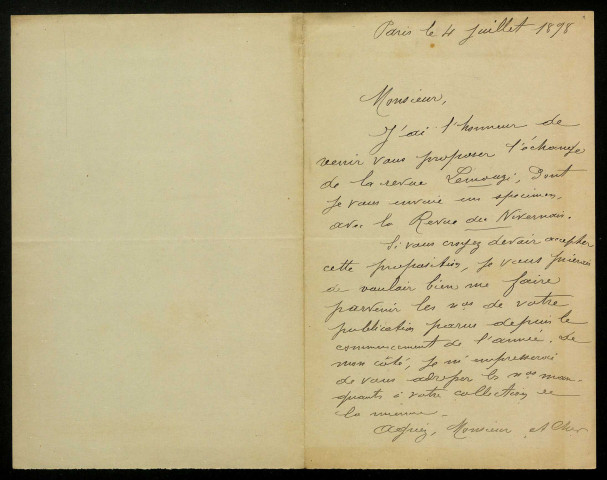 Paris le 4 juillet 1898
Monsieur,
J'ai l'honneur de
venir vous proposer l'échange
de la revue Lemouzi, dont
je vous envoie un specimen,
avec la Revue du Nivernais.
Si vous croyez devoir accepter
cette proposition, je vous prierais
de vouloir bien me faire
parvenir les nos de votre
publication parus depuis le
commencement de l'année. De
mon côté, je m'empresserai
de vous adresser les nos man-
quants à votre collection de
la mienne.
Agréez, Monsieur et Cher